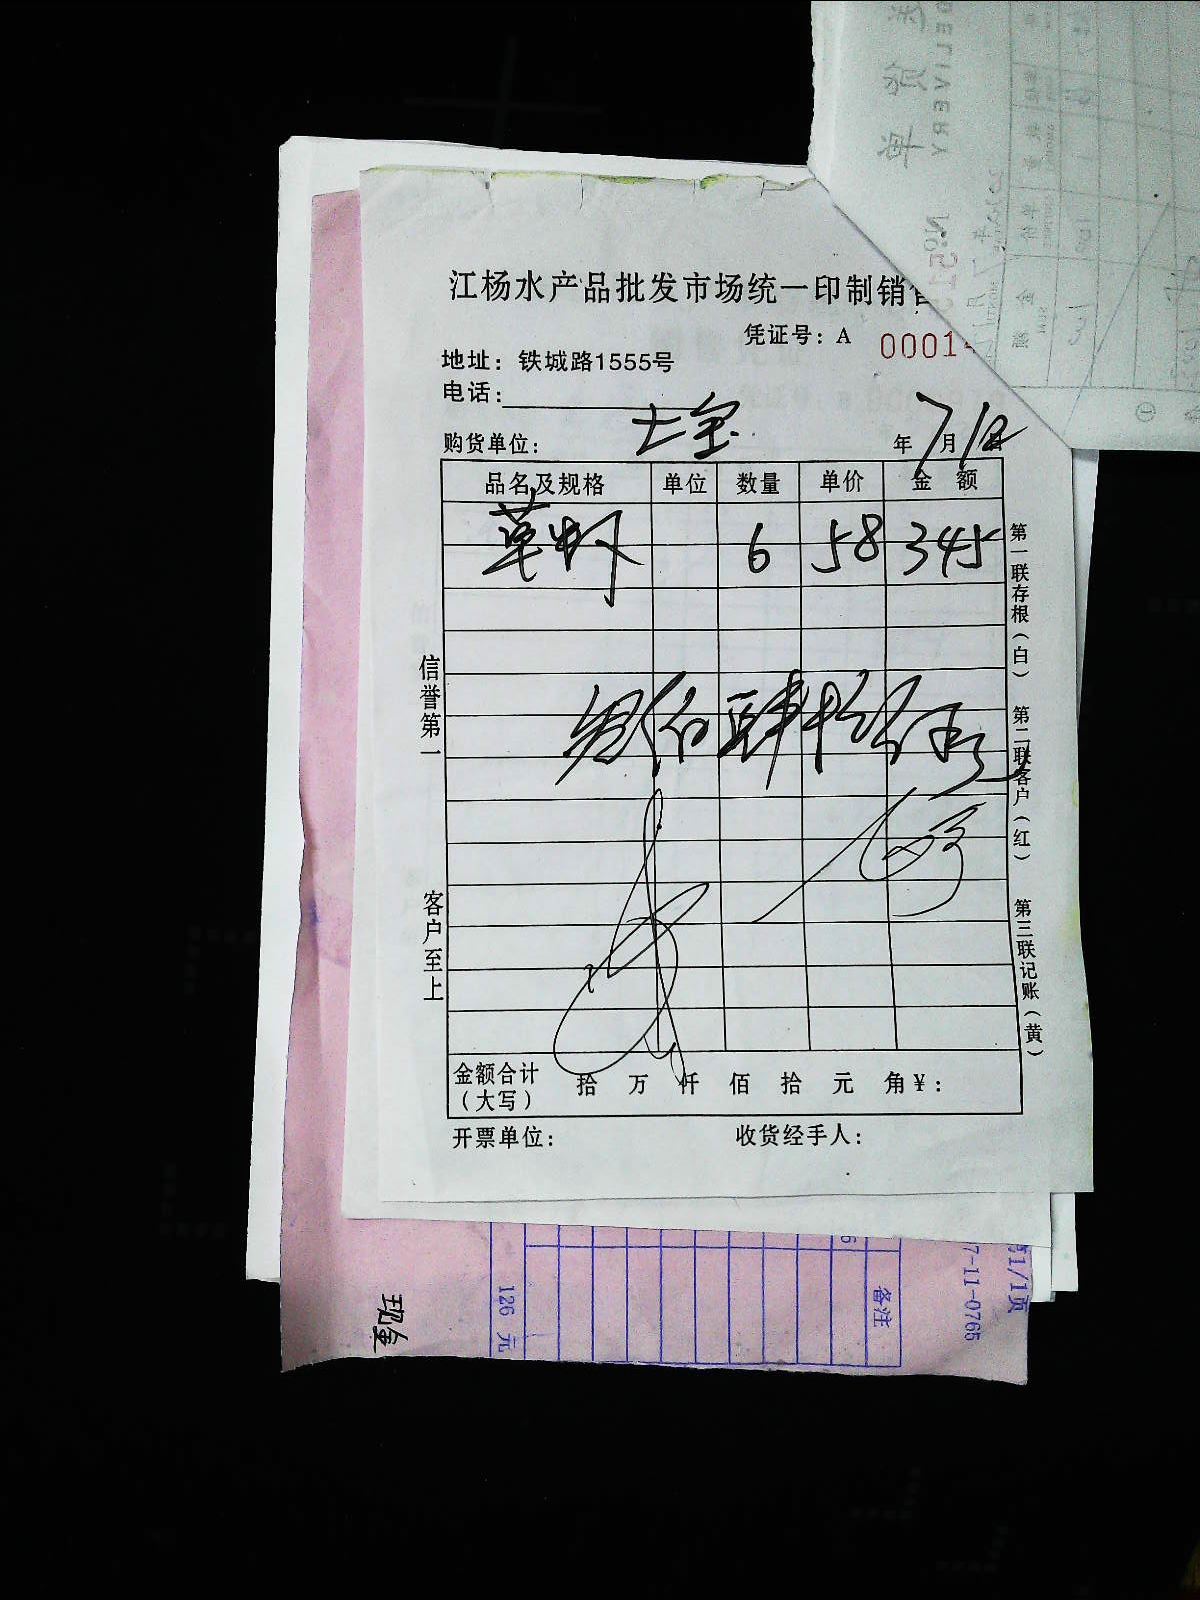 江杨水产品批发市场统一印制销
凭证号：A 0001
地址：铁城路1555号
电话：
购货单位： 七宝 年 7月12日
品名及规格 单位 数量 单价 金额
草虾 6 58 345
叁佰肆拾伍元
金额合计（大写） 拾 万 仟 佰 拾 元 角 ¥：
开票单位： 收货经手人：
信誉第一
客户至上
第一联存根（白） 第二联客户（红） 第三联记账（黄）
DELIVERY
№
①
现金
126 元
备注
7-11-0765
1/1页